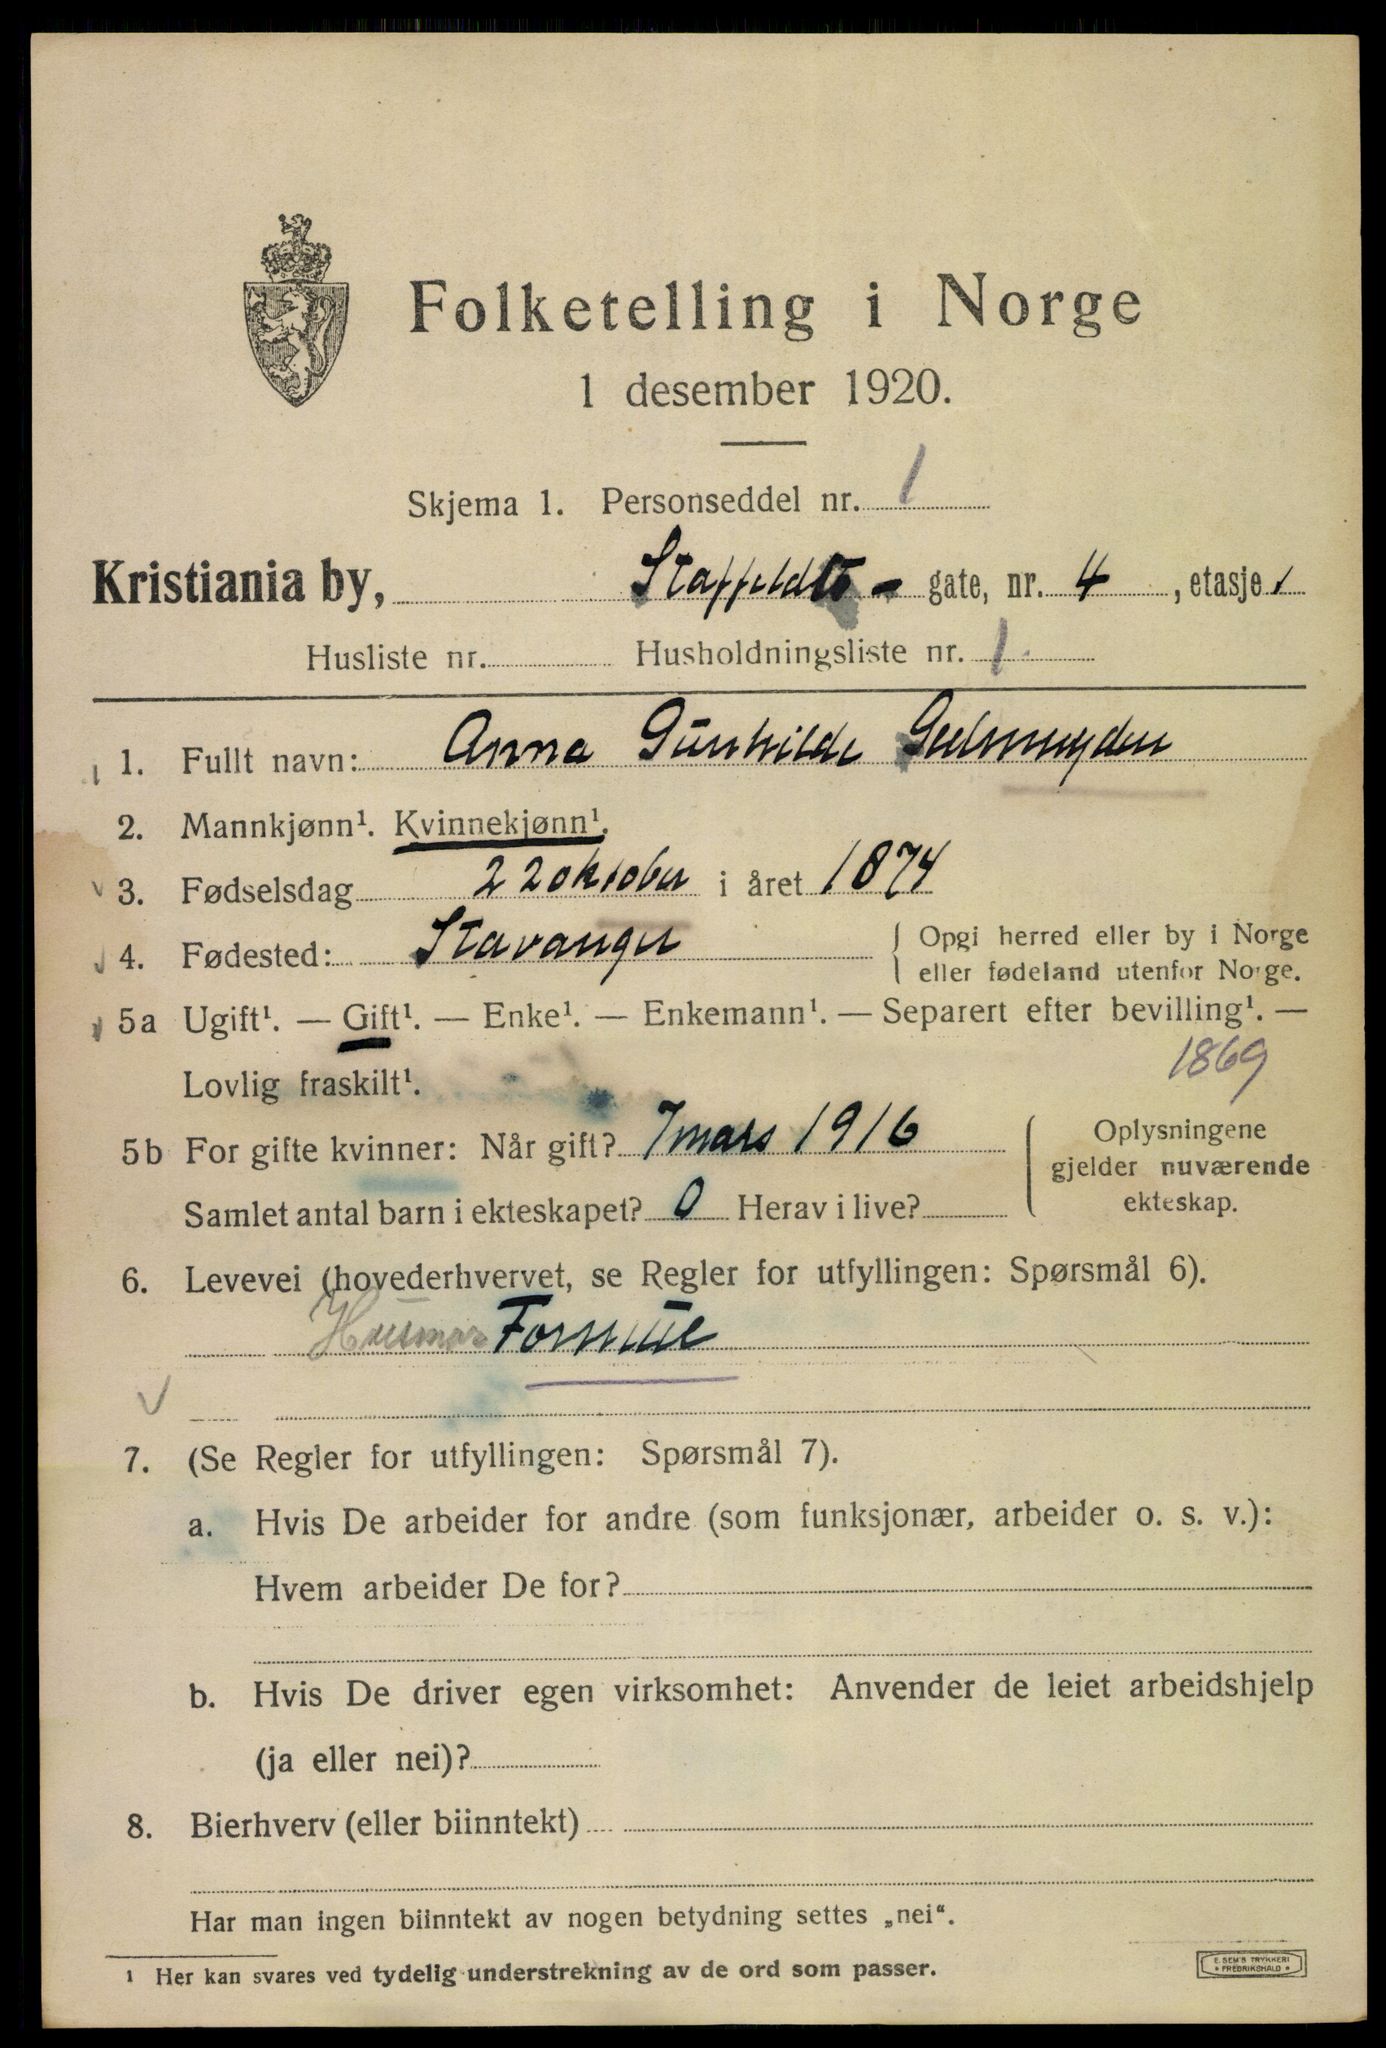 Folketelling i Norge
1 desember 1920.
Skjema 1. Personseddel nr. 1
Kristiania by, Staffeldts - gate, nr. 4, etasje 1
Husliste nr. Husholdningsliste nr. 1
1. Fullt navn: Anna Gunhilde Geelmuyden
2. Mannkjønn¹. Kvinnekjønn¹.
3. Fødselsdag 22 oktober i året 1874
4. Fødested: Stavanger
Opgi herred eller by i Norge
eller fødeland utenfor Norge.
5a Ugift¹. — Gift¹. — Enke¹. — Enkemann¹. — Separert efter bevilling¹. —
Lovlig fraskilt¹.
1869
5b For gifte kvinner: Når gift? 7 mars 1916
Samlet antal barn i ekteskapet? 0 Herav i live?
Oplysningene
gjelder nuværende
ekteskap.
6. Levevei (hovederhvervet, se Regler for utfyllingen: Spørsmål 6).
Husmor Formue
7. (Se Regler for utfyllingen: Spørsmål 7).
a. Hvis De arbeider for andre (som funksjonær, arbeider o. s. v.):
Hvem arbeider De for?
b. Hvis De driver egen virksomhet: Anvender de leiet arbeidshjelp
(ja eller nei)?
8. Bierhverv (eller biinntekt)
Har man ingen biinntekt av nogen betydning settes „nei“.
1 Her kan svares ved tydelig understrekning av de ord som passer.
E. SEM'S TRYKKERI
* FREDRIKSHALD *